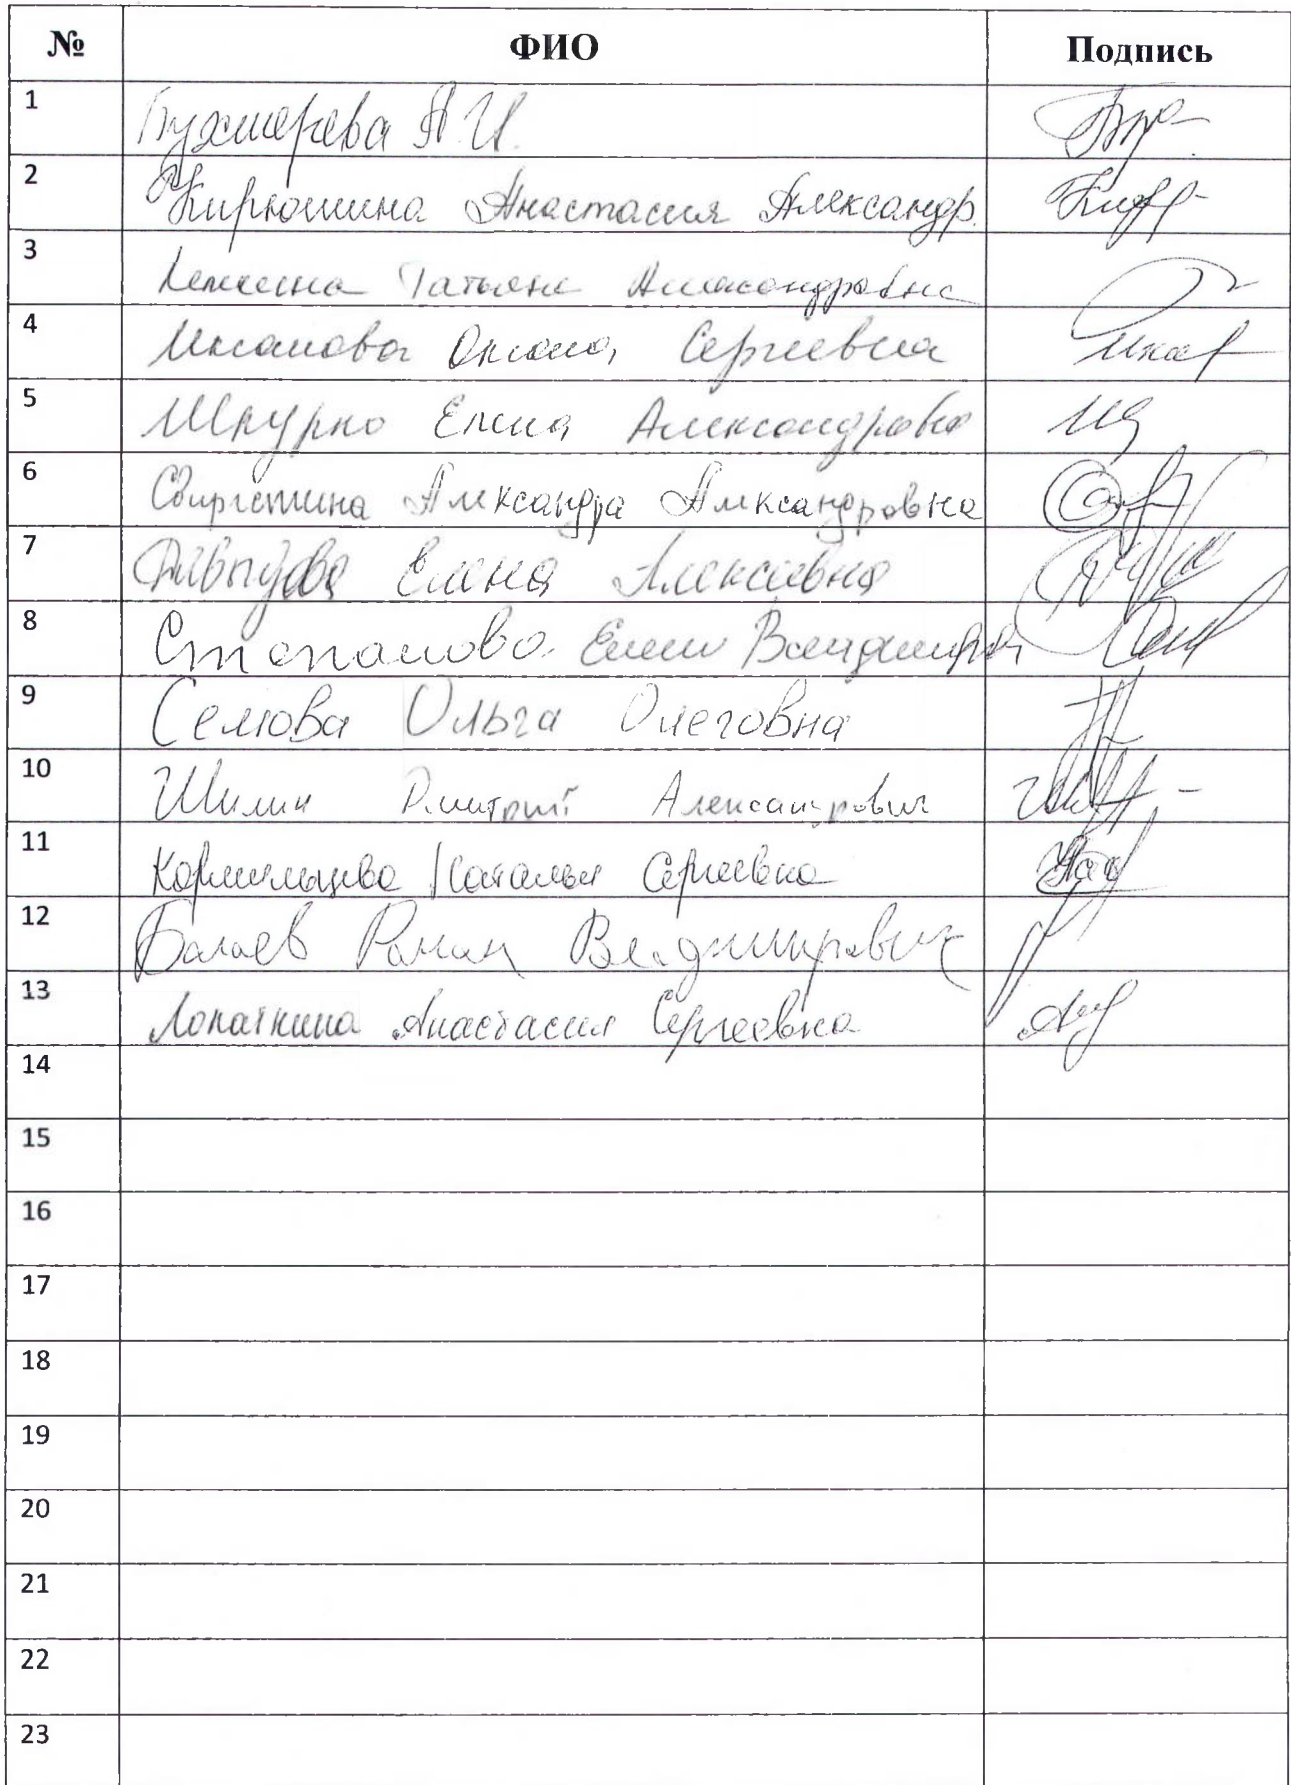 № ФИО Подпись
1 Бухмерева А.И.
2 Кирюшина Анастасия Александр.
3 Татьяна Александровна
4 Иксанова Оксана Сергеевна
5 Шкурко Елена Александровна
6 Александра Александровна
7 Елена Алексеевна
8 Степанова Елена Владимиров
9 Семова Ольга Олеговна
10 Шилин Дмитрий Александрович
11 Кормильцева Наталья Сергеевна
12 Балаев Роман Владимирович
13 Лопаткина Анастасия Сергеевна
14
15
16
17
18
19
20
21
22
23